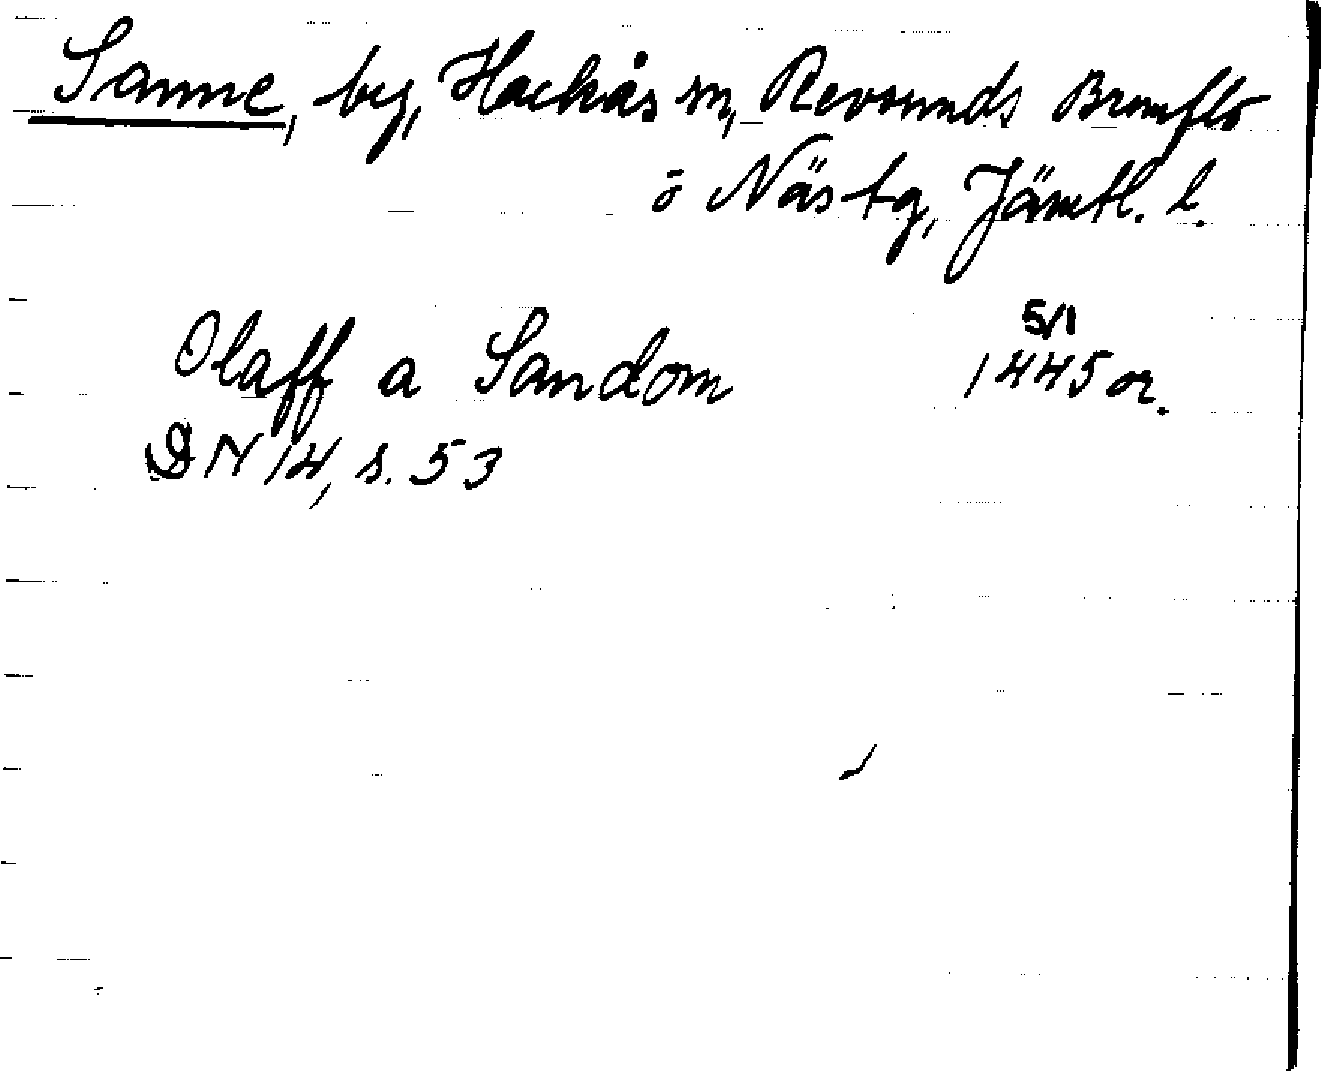 Sanne, by, Hackås sn, Revsunds Brunflo
o Näs tg, Jämtl. l.
Olaff a Sandom 5/1 1445 or.
DN 14, s. 53